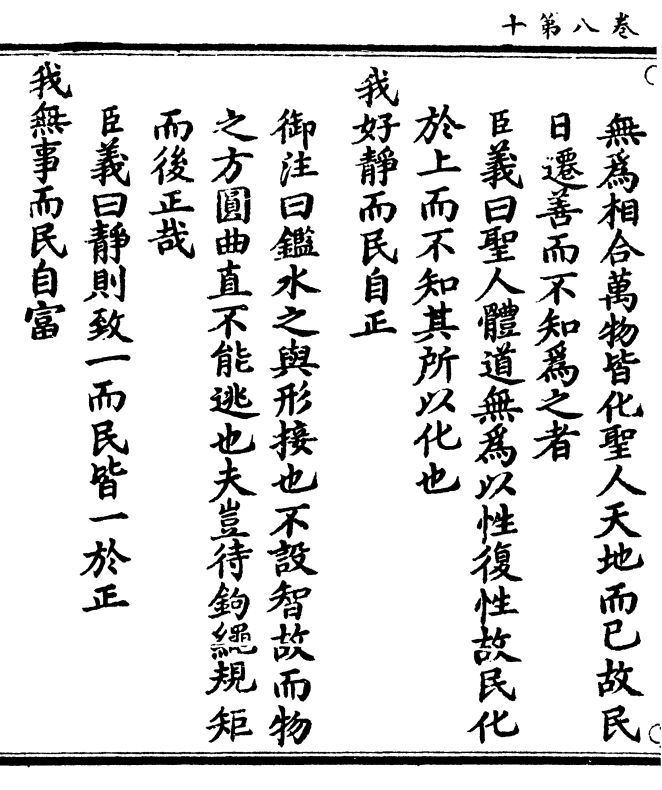 卷八第十
無爲相合萬物皆化聖人天地而已故民
日遷善而不知爲之者
臣義曰聖人體道無爲以性復性故民化
於上而不知其所以化也
我好靜而民自正
御注曰鑑水之與形接也不設智故而物
之方圓曲直不能逃也夫豈待鉤繩規矩
而後正哉
臣義曰靜則致一而民皆一於正
我無事而民自富